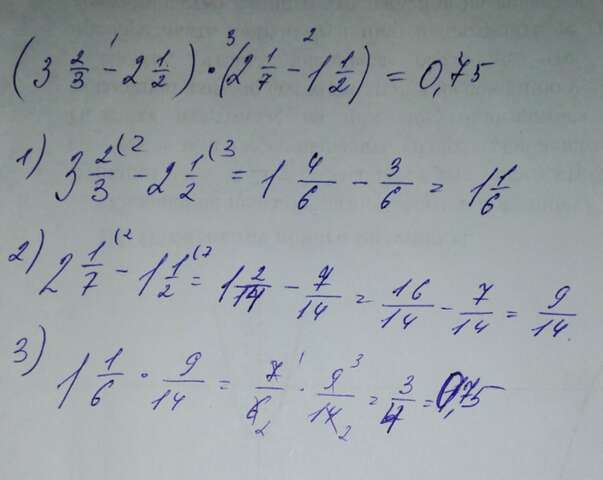 (3 2/3 - 2 1/2) · (2 1/7 - 1 1/2) = 0,75
1) 3 2/3 (2 - 2 1/2 (3 = 1 4/6 - 3/6 = 1 1/6
2) 2 1/7 (2 - 1 1/2 (7 = 1 2/14 - 7/14 = 16/14 - 7/14 = 9/14.
3) 1 1/6 · 9/14 = 7/6 · 9/14 = 3/4 = 0,75